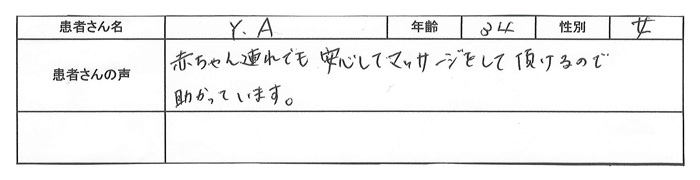 患者さん名 Y.A 年齢 34 性別 女
患者さんの声 赤ちゃん連れでも安心してマッサージをして頂けるので
助かっています。